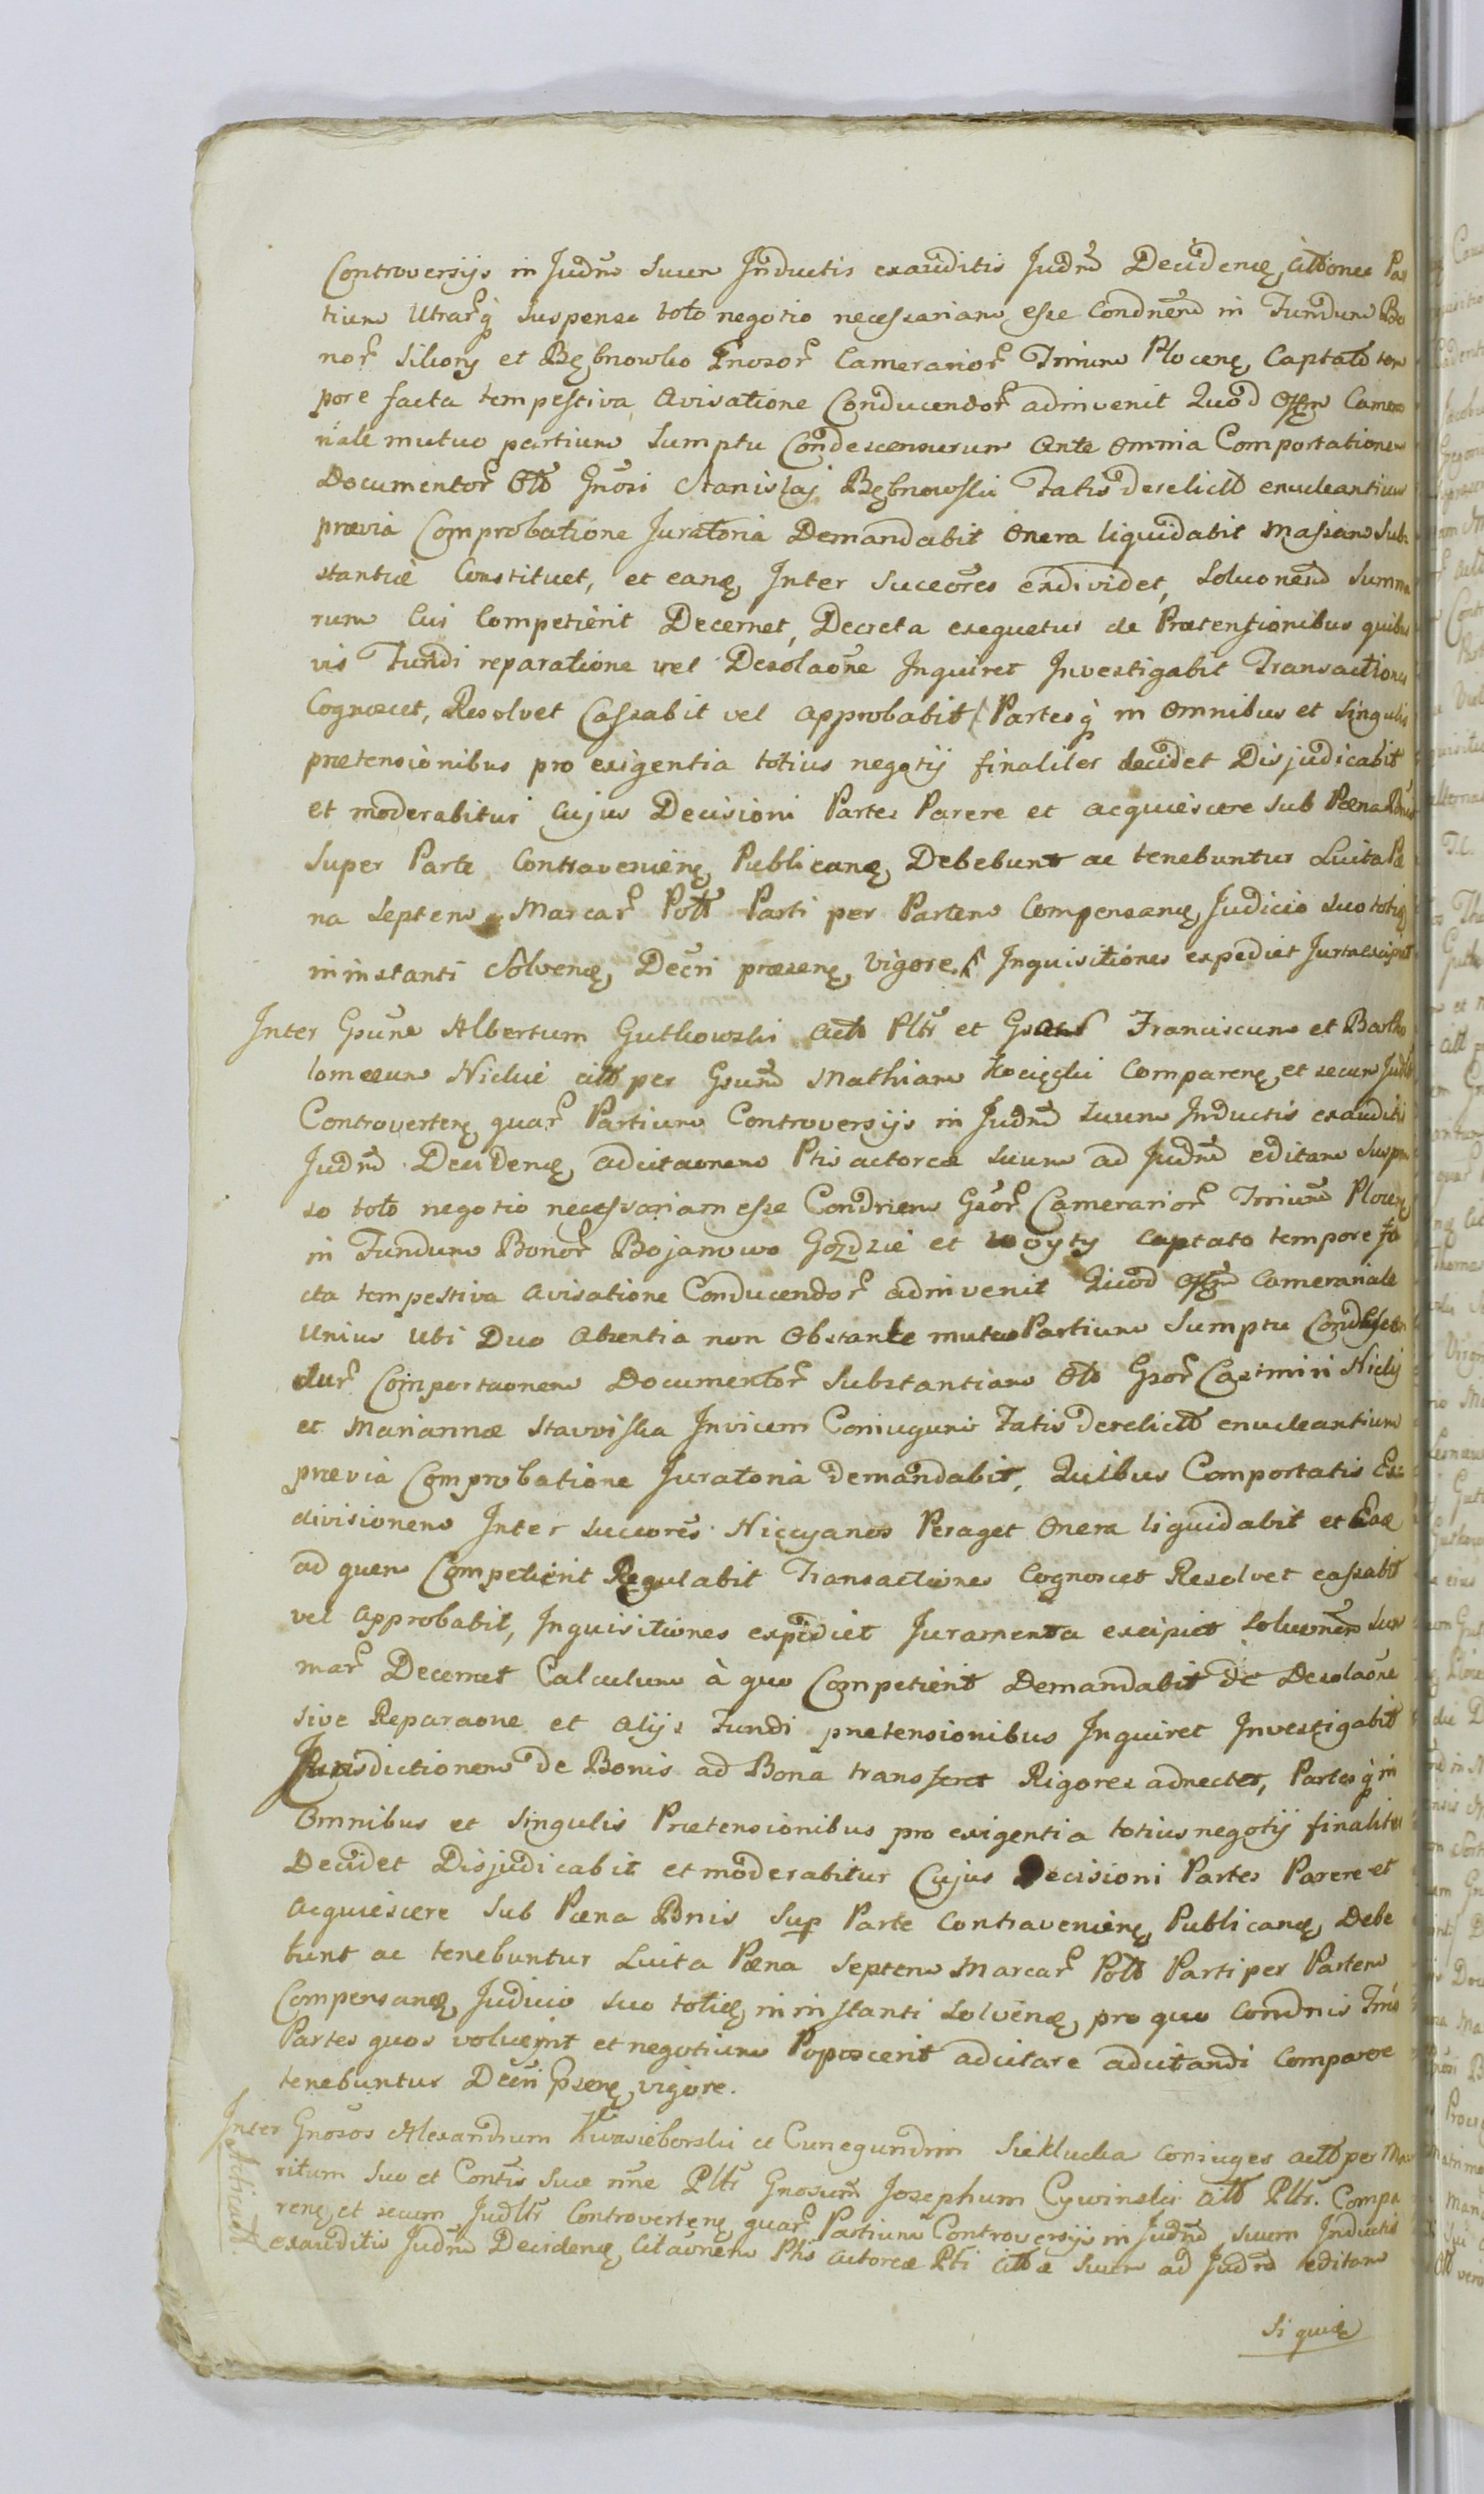 Controversijs in Judm̃ suum Inductis exauditis Judm̃ Decidenę, Citt̃ones Par
tium Utrarq̃ suspenso toto negotio necessariam esse Condnem̃ in Fundum Bo
nor̃ Sikory et Bębnowko Gnosor̃ Camerarior̃ Trrium Plocenę, Captatt̃ tem
pore facta tempestiva Avisatione Conducendor̃ adinvenit Quod Offm̃ Camera
riale mutuo partium Sumptu Condescensurum Ante omnia Comportationem
Documentor̃ Ott̃ Gnosi Stanislaj Bębnowski Fatis derelictt̃ enucleantium
prævia Comprobatione Juratoria Demandabit Onera liquidabit Massam Sub
stantiæ Constituet, et eanę, Inter Succeores exdividet, Soluonem̃ Summa
rum Cui Competierit Decernet, Decreta exequetur de Prætensionibus quibus
vis Fundi reparatione vel Desolaone Inquiret Investigabit Transactiones
Cognoscet, Resolvet Cassabit vel approbabit Partesq̃ in Omnibus et Singulis
prætensionibus pro exigentia totius negotij finaliter decidet Disjudicabit
et moderabitur Cujus Decisioni Partes Parere et acquiescere sub Pæna
Super Parte Contravenienę, Publicanę, Debebunt ac tenebuntur Luita Pæ
na Septem Marcar̃ Pott̃ Parti per Partem Compensanę, Judicio suo totię,
in instanti Solvenę, Decri præsenę, vigore. Inquisitiones expediet
Inter Gsum Albertum Gutkowski Actt̃ Pltr̃ et Franciscum et Bartho
lomæum Nickie citt̃ per Gsum̃ Mathiam Kocięcki Comparenę, et secum Judltr̃
Controvertenę, quar̃ Partium Controversijs in Judm̃ suum Inductis exauditis
Judm̃ Decidenę, adcitaonem Ptis actoreæ suum ad Judm̃ editam Suspen
so toto negotio necessariam esse Condnem Gsor̃ Camerarior̃ Trrium̃ Plocenę,
in Fundum Bonor̃ Bojanowo Gozdzie et Woyty Captato tempore fa
cta tempestiva avisatione Conducendor̃ adinvenit Quod Offm̃ Camerariale
Unius Ubi Duo Absentia non Obstante mutuo Partium Sumptu Condescen
dur̃ Comportaonem Documentor̃ Substantiam Ott̃ Gsor̃ Casimiri Nickij
et Mariannæ Stawiska Invicem Coniugum Fatis Derelictt̃ enucleantium
prævia Comprobatione Juratoria demandabit, Quibus Comportatis Ex
divisionem Inter Succeores Niccyanos Peraget Onera liquidabit et Eaę
ad quem Competierit Regulabit Transactiones Cognoscet Resolvet cassabit
vel Approbabit, Inquisitiones expediet Juramenta excipiet Soluonem Sum
mar̃ Decernet Calculum à quo Competierit Demandabit de Desolaone
sive Reparaone et Alijs Fundi prætensionibus Inquiret Investigabit
Jurisdictionem de Bonis ad Bona transferet Rigores adnectet, Partesq̃ in
Omnibus et Singulis Prætensionibus pro exigentia totius negotij finaliter
Decidet Disjudicabit et moderabitur Cujus Decisioni Partes Parere et
Acquiescere Sub Pæna Bnis Sup Parte Contravenienę, Publicanę, Debe
bunt ac tenebuntur Luita Pæna Septem Marcar̃ Pott̃ Parti per Partem
Compensanę, Judicio suo totię, in instanti Solvenę, pro quo Condnis Tmo
Partes quos voluerint et negotium Poposcerit adcitare adcitandi Comparere
tenebuntur Decri Psenę, vigore.
Inter Gnosos Alexandrum Kwasieborski et Cunegundim Siekluckа Coniuges actt̃ per Ma
ritum Suo et Contis Suæ nñe Pltr̃ Gnosum̃ Josephum Cywinski citt̃ Pltr̃. Compa
renę, et secum Judltr̃ Controvertenę, quar̃ Partium Controversijs in Judm̃ suum Inductis
exauditis Judm̃ Decidenę, Citaonem Ptis Actoreæ Pti Citt̃æ suum ad Judm̃ editam
Si quidę